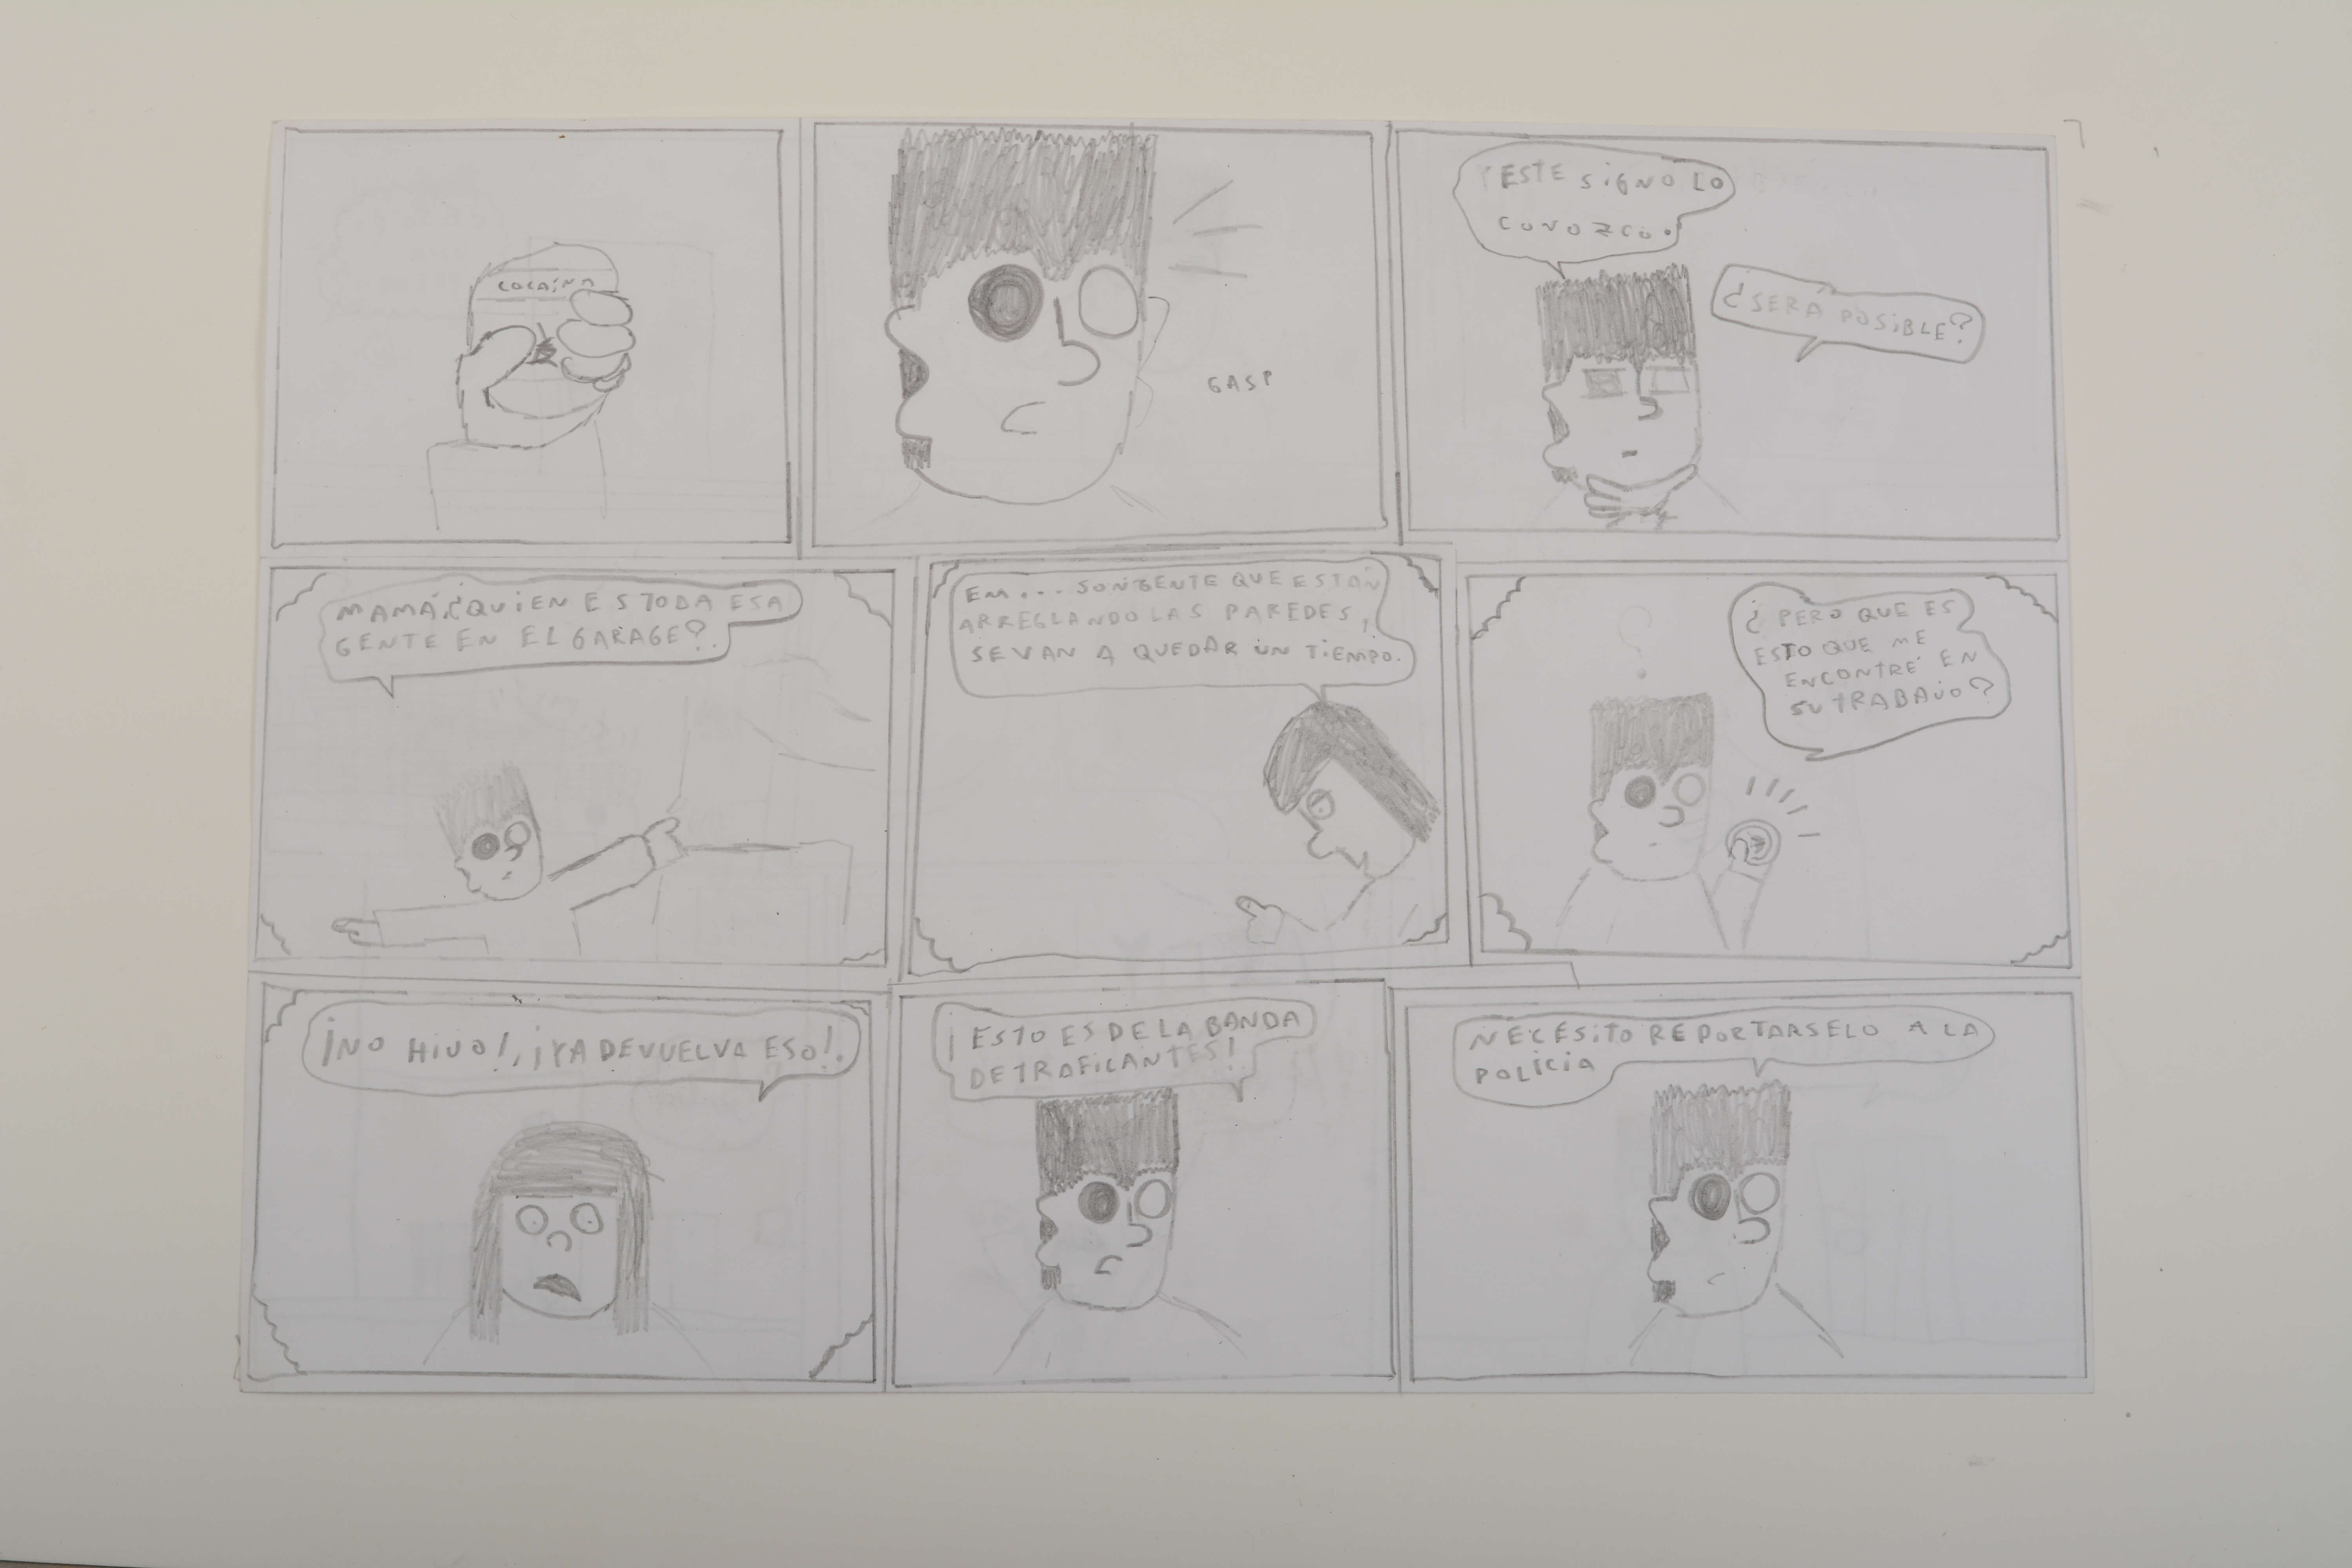 COCAÍNA
GASP
ESTE SIGNO LO
CONOZCO.
¿SERÁ POSIBLE?
MAMÁ ¿QUIEN ES TODA ESA
GENTE EN EL GARAGE?.
EM... SON GENTE QUE ESTÁN
ARREGLANDO LAS PAREDES,
SE VAN A QUEDAR UN TIEMPO.
?
¿PERO QUE ES
ESTO QUE ME
ENCONTRÉ EN
SU TRABAJO?
¡NO HIJO!, ¡YA DEVUELVA ESO!.
¡ESTO ES DE LA BANDA
DE TRAFICANTES!
NECESITO REPORTARSELO A LA
POLICIA